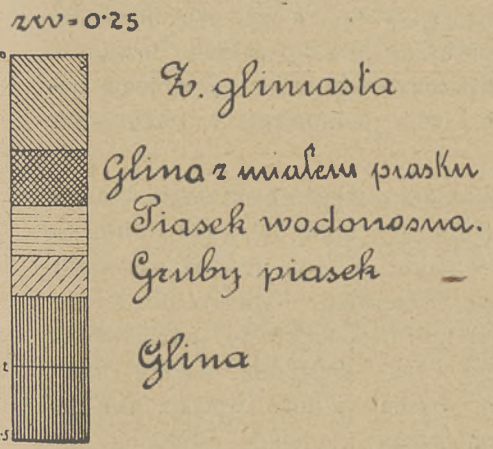 zw = 0·25
0
Z. gliniasta
Glina z miałem piasku
Piasek wodonosna.
Gruby piasek
Glina